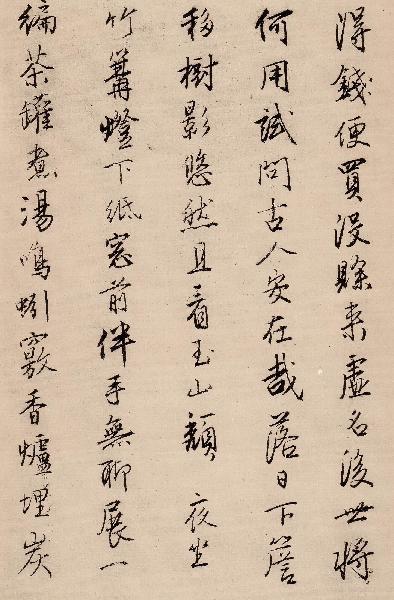 得錢便買沒賒來虛名後世將
何用試問古人安在哉落日下簷
移樹影悠然且看玉山頹 夜坐
竹篝燈下紙窗前伴手無聊展一
編茶罐煮湯鳴蚓竅香爐埋炭